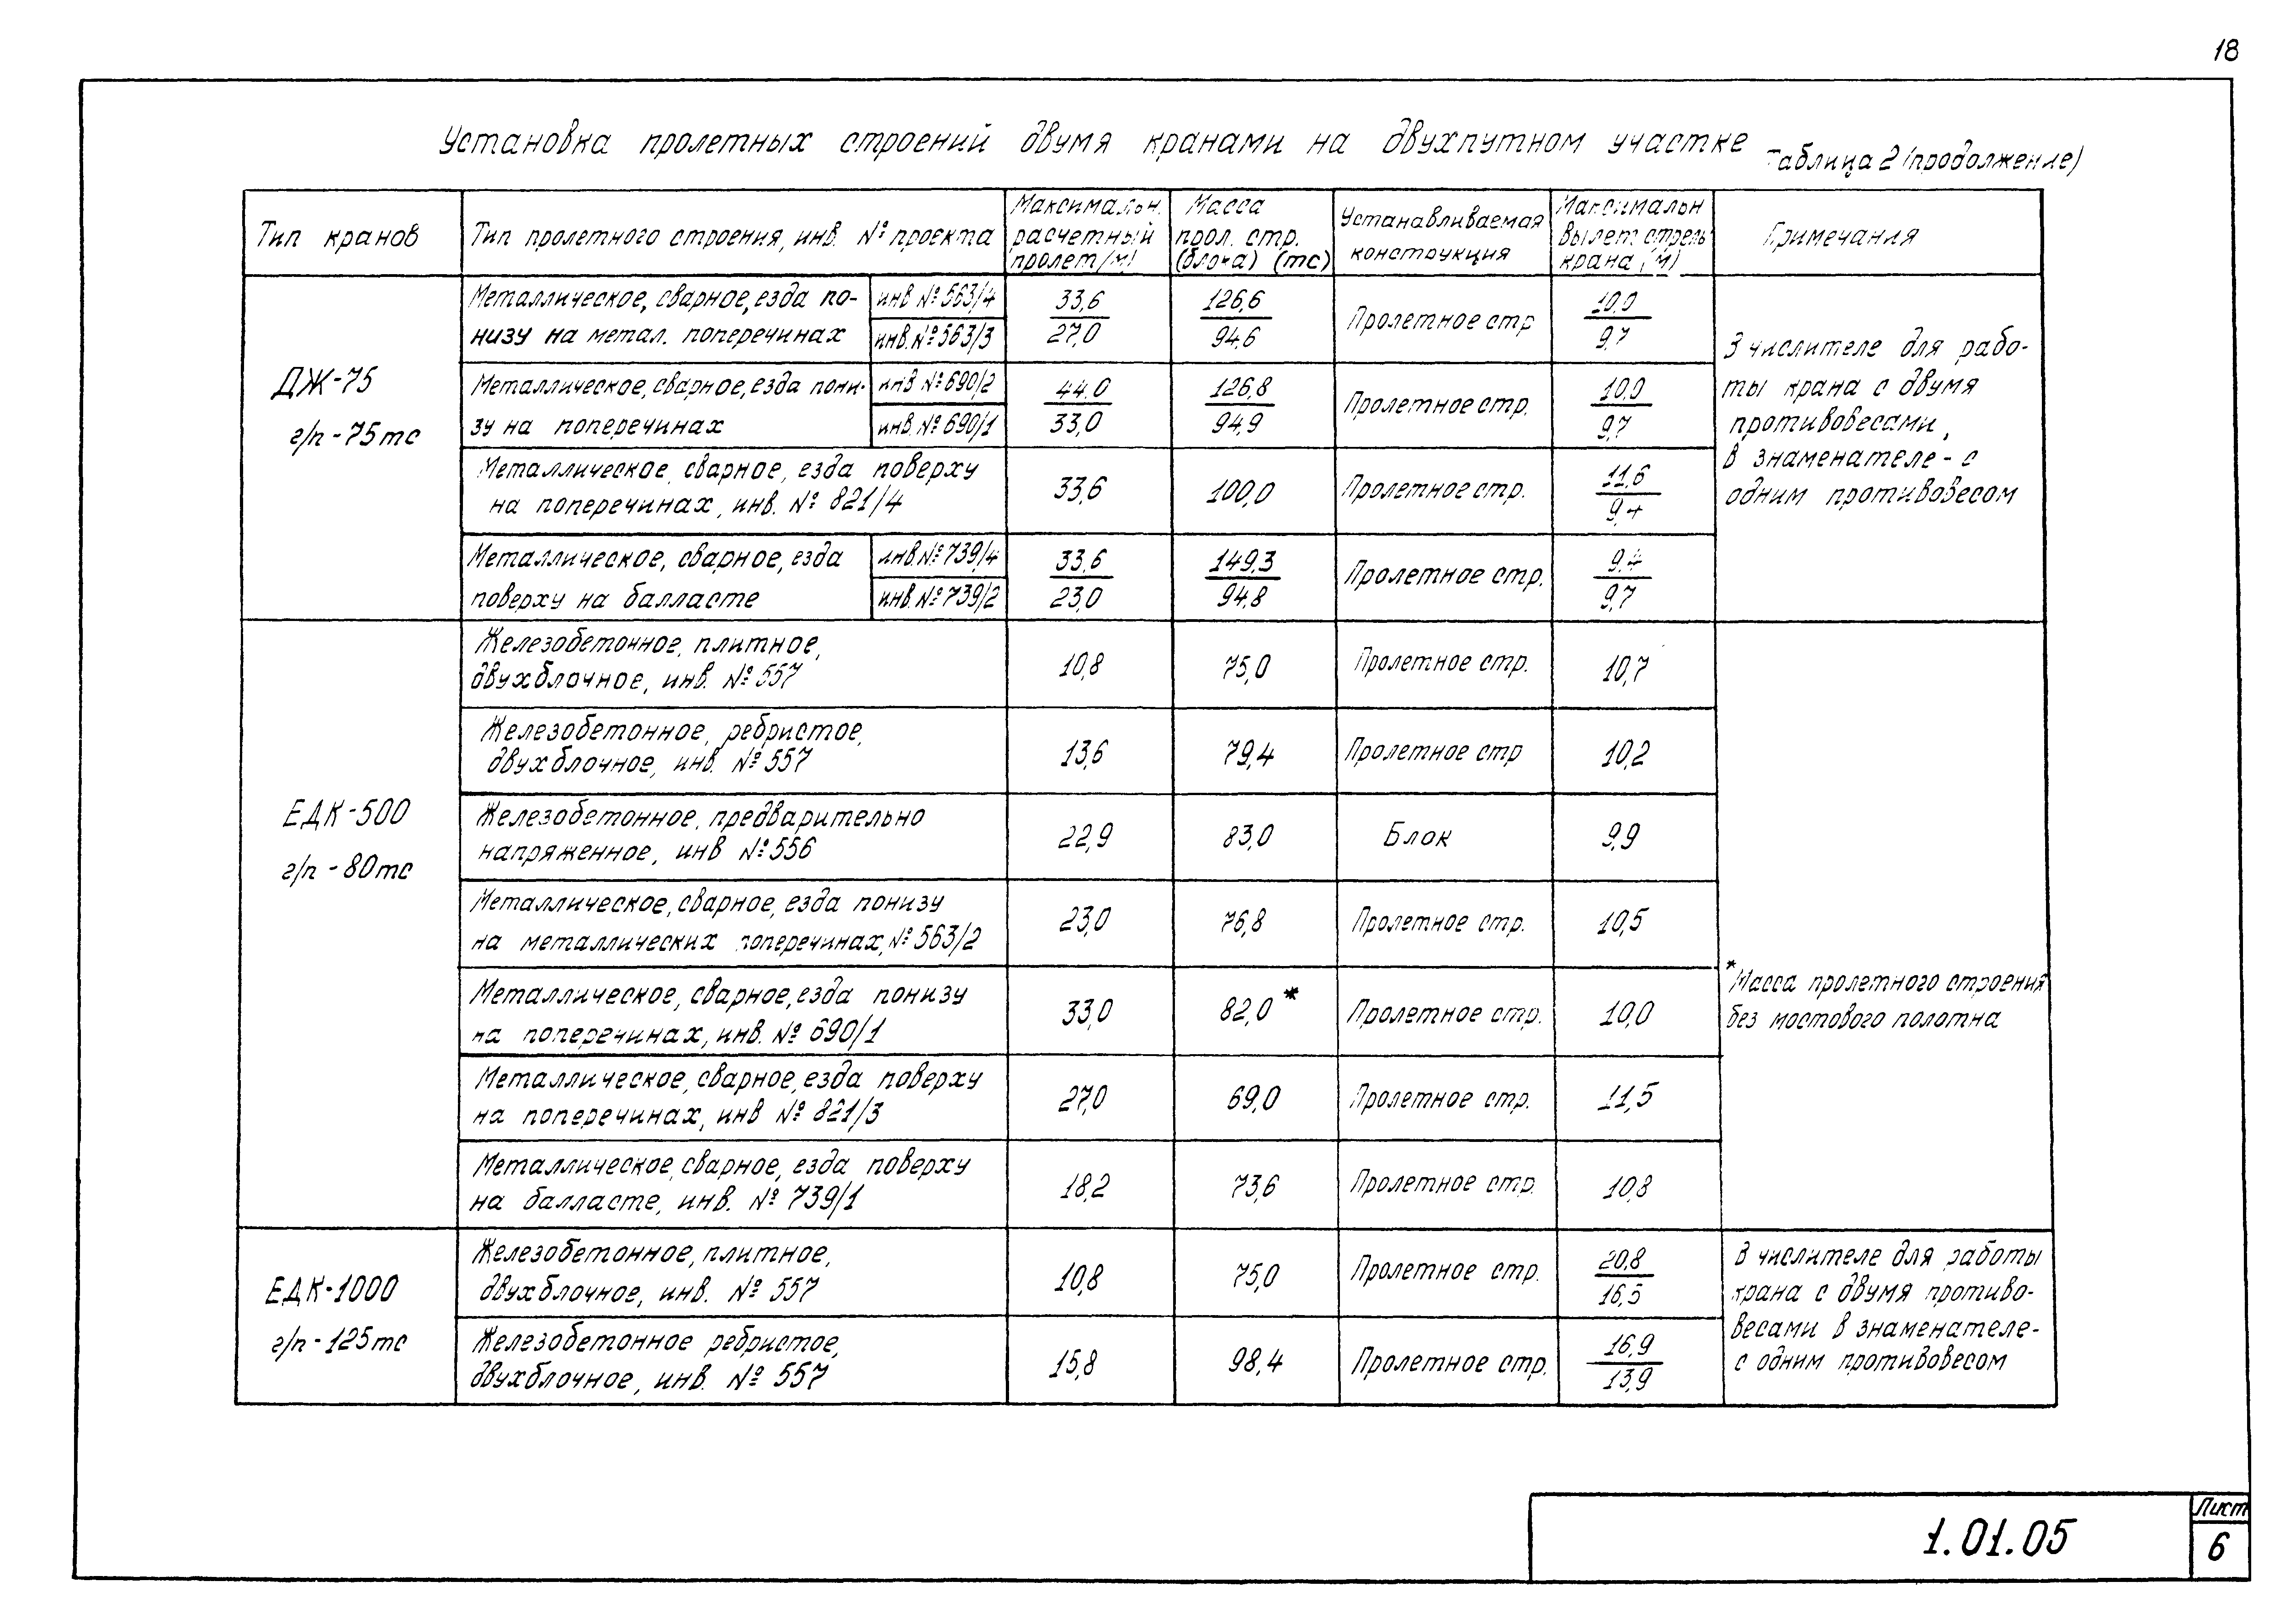 18
Установка пролетных строений двумя кранами на двухпутном участке
Таблица 2 (продолжение)
Тип кранов
Тип пролетного строения, инв. № проекта
Максимальн.
расчетный
пролет (м)
Масса
прол. стр.
(блока) (тс)
Устанавливаемая
конструкция
Максимальн
вылет стрелы
крана (м)
Примечания
ДЖ-75
г/п - 75тс
Металлическое, сварное, езда по-
низу на метал. поперечинах
инв № 563/4
инв. № 563/3
33,6
27,0
126,6
94,6
Пролетное стр
10,0
9,7
В числителе для рабо-
ты крана с двумя
противовесами,
в знаменателе - с
одним противовесом
Металлическое, сварное, езда пони-
зу на поперечинах
инв № 690/2
инв. № 690/1
44,0
33,0
126,8
94,9
Пролетное стр.
10,0
9,7
Металлическое, сварное, езда поверху
на поперечинах, инв. № 821/4
33,6
100,0
Пролетное стр.
11,6
9,4
Металлическое, сварное, езда
поверху на балласте
инв. № 739/4
инв. № 739/2
33,6
23,0
149,3
94,8
Пролетное стр.
9,4
9,7
ЕДК-500
г/п - 80тс
Железобетонное, плитное,
двухблочное, инв. № 557
10,8
75,0
Пролетное стр.
10,7
Железобетонное, ребристое,
двухблочное, инв. № 557
13,6
79,4
Пролетное стр
10,2
Железобетонное, предварительно
напряженное, инв № 556
22,9
83,0
Блок
9,9
Металлическое, сварное, езда понизу
на металлических поперечинах, № 563/2
23,0
76,8
Пролетное стр.
10,5
Металлическое, сварное, езда понизу
на поперечинах, инв. № 690/1
33,0
82,0 *
Пролетное стр.
10,0
* Масса пролетного строения
без мостового полотна
Металлическое, сварное, езда поверху
на поперечинах, инв № 821/3
27,0
69,0
Пролетное стр.
11,5
Металлическое, сварное, езда поверху
на балласте, инв. № 739/1
18,2
73,6
Пролетное стр.
10,8
ЕДК-1000
г/п - 125тс
Железобетонное, плитное,
двухблочное, инв. № 557
10,8
75,0
Пролетное стр.
20,8
16,5
В числителе для работы
крана с двумя противо-
весами в знаменателе -
с одним противовесом
Железобетонное ребристое,
двухблочное, инв. № 557
15,8
98,4
Пролетное стр.
16,9
13,9
1.01.05
Лист
6